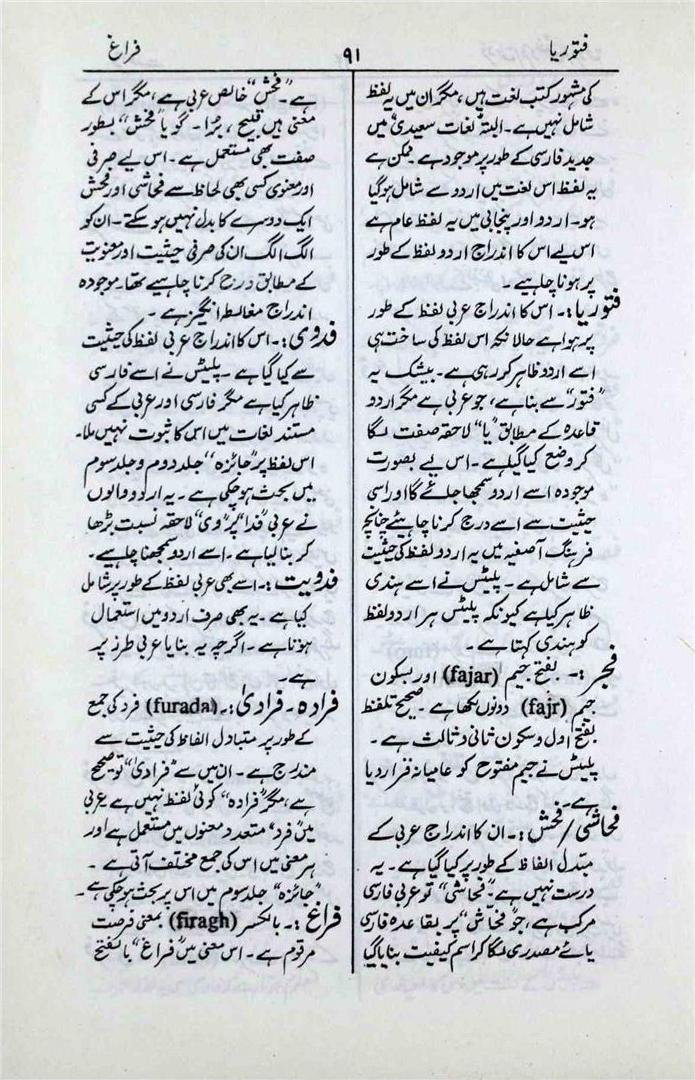 فتوریا
۹۱
فراغ
کی مشہور کتب لغت ہیں، مگر ان میں یہ لفظ
شامل نہیں ہے۔ البتہ "لغات سعیدی" میں
جدید فارسی کے طور پر موجود ہے۔ ممکن ہے
یہ لفظ اس لغت میں اردو سے شامل ہو گیا
ہو۔ اردو اور پنجابی میں یہ لفظ عام ہے
اس لیے اس کا اندراج اردو لفظ کے طور
پر ہونا چاہیے۔
فتوریا:۔ اس کا اندراج عربی لفظ کے طور
پر ہوا ہے حالانکہ اس لفظ کی ساخت ہی
اسے اردو ظاہر کر رہی ہے۔ بیشک یہ
"فتور" سے بنا ہے، جو عربی ہے مگر اردو
قاعدہ کے مطابق "یا" لاحقہ صفت لگا
کر وضع کیا گیا ہے۔ اس لیے بصورت
موجودہ اسے اردو سمجھا جائے گا اور اسی
حیثیت سے اسے درج کرنا چاہیئے چنانچہ
فرہنگ آصفیہ میں یہ اردو لفظ کی حیثیت
سے شامل ہے۔ پلیٹس نے اسے ہندی
ظاہر کیا ہے کیونکہ پلیٹس ہر اردو لفظ
کو ہندی کہتا ہے۔
فجر:۔ بفتح جیم (fajar) اور بسکون
جیم (fajr) دونوں لکھا ہے۔ صحیح تلفظ
بفتح اول و سکون ثانی و ثالث ہے۔
پلیٹس نے جیم مفتوح کو عامیانہ قرار دیا
ہے۔
فحاشی/فحش:۔ ان کا اندراج عربی کے
متبدل الفاظ کے طور پر کیا گیا ہے۔ یہ
درست نہیں ہے۔ "فحاشی" تو عربی فارسی
مرکب ہے، جو "فحاش" پر بقاعدہ فارسی
یائے مصدری لگا کر اسم کیفیت بنایا گیا
ہے۔ "فحش" خالص عربی ہے، مگر اس کے
معنی ہیں قبیح، بڑا۔ گویا "فحش" بطور
صفت بھی مستعمل ہے۔ اس لیے صرفی
اور معنوی کسی بھی لحاظ سے فحاشی اور فحش
ایک دوسرے کا بدل نہیں ہو سکتے۔ ان کو
الگ الگ ان کی صرفی حیثیت اور معنویت
کے مطابق درج کرنا چاہیے تھا۔ موجودہ
اندراج مغالطہ انگیز ہے۔
فدوی:۔ اس کا اندراج عربی لفظ کی حیثیت
سے کیا گیا ہے۔ پلیٹس نے اسے فارسی
ظاہر کیا ہے مگر فارسی اور عربی کے کسی
مستند لغات میں اس کا ثبوت نہیں ملا۔
اس لفظ پر "جائزہ" جلد دوم و جلد سوم
میں بحث ہو چکی ہے۔ یہ اردو والوں
نے عربی "فدا" پر "وی" لاحقہ نسبت بڑھا
کر بنا لیا ہے۔ اسے اردو سمجھنا چاہیے۔
فدویت:۔ اسے بھی عربی لفظ کے طور پر شامل
کیا ہے۔ یہ بھی صرف اردو میں استعمال
ہوتا ہے۔ اگرچہ یہ بنایا عربی طرز پر
ہے۔
فرادہ۔ فرادیٰ:۔ (furada) فرد کی جمع
کے طور پر متبادل الفاظ کی حیثیت سے
مندرج ہے۔ ان میں سے "فرادیٰ" تو صحیح
ہے، مگر "فرادہ" کوئی لفظ نہیں ہے عربی
میں "فرد" متعدد معنوں میں مستعمل ہے اور
ہر معنی میں اس کی جمع مختلف آتی ہے۔
"جائزہ" جلد سوم میں اس پر بحث ہو چکی ہے۔
فراغ:۔ بالکسر (firagh) بمعنی فرصت
مرقوم ہے۔ اس معنی میں "فراغ" بالفتح